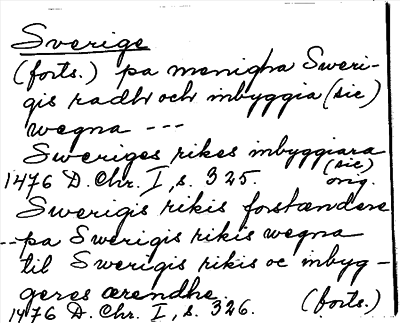 Sverige
(forts.) pa menigha Sweri-
gis radh och inbyggia (sic)
wegna ---
Sweriges rikes inbyggiara
(sic)
1476 D. Chr. I, s. 325. orig.
Swerigis rikis forstændere
-- pa Swerigis rikis wegna
til Swerigis rikis oc inbyg-
geres ærendhe.
1476 D. Chr. I, s. 326. (forts.)